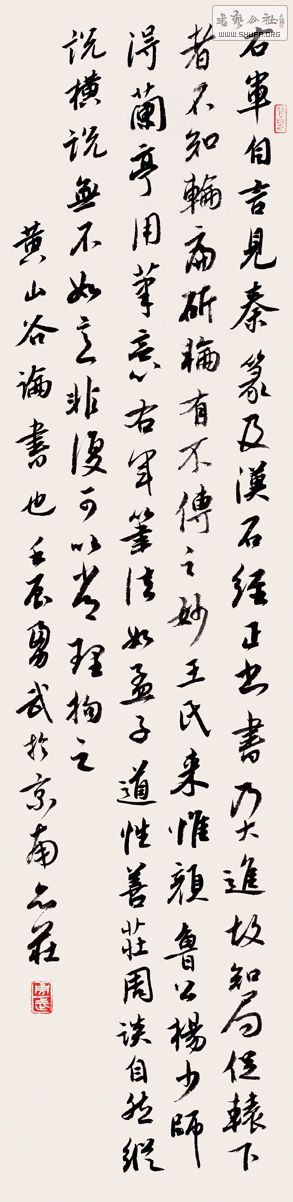 右軍自言見秦篆及漢石經正书書乃大進故知局促轅下
者不知輪扁斫輪有不傳之妙王氏来惟顏魯公楊少師
得蘭亭用筆意右军筆法如孟子道性善莊周談自然縱
说横说無不如意非復可以常理拘之
黄山谷論書也壬辰勇武於京南
書藝公社
www.SHUFA.ORG